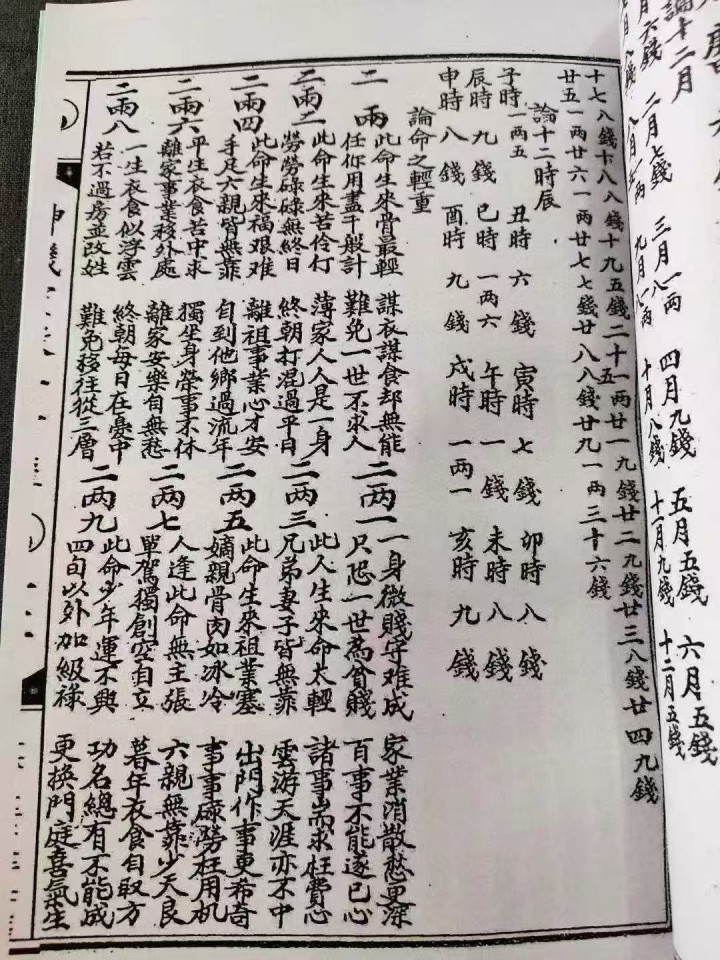 論十二月
月六錢 二月七錢 三月一兩八 四月九錢 五月五錢 六月五錢
十月八錢 十一月九錢 十二月五錢
十七八錢十八八錢十九五錢二十一兩五廿一九錢廿二九錢廿三八錢廿四九錢
廿五一兩廿六一兩廿七七錢廿八八錢廿九一兩三十六錢
論十二時辰
子時一兩五 丑時六錢 寅時七錢 卯時八錢
辰時九錢 巳時一兩六 午時一錢 未時八錢
申時八錢 酉時九錢 戌時一兩一 亥時九錢
論命之輕重
二兩 此命生來骨最輕 謀衣謀食却無能
任你用盡千般計 難免一世不求人
二兩一 一身微賤守难成 家業消散愁更深
只恐一世為貧賤 百事不能遂已心
二兩二 此命生來苦伶仃 薄家人人是一身
勞勞碌碌無終日 終朝打混過平日
二兩三 此人生來命太輕 諸事耑求枉費心
兄弟妻子皆無靠 雲游天涯亦不中
二兩四 此命生來福艰难 離祖事業心才安
手足六親皆無靠 自到他鄉過流年
二兩五 此命生來祖業塞 出門作事更希奇
嫡親骨肉如冰冷 事事廢勞枉用机
二兩六 平生衣食苦中求 獨坐身榮事不休
離家事業移外處 離家安樂自無愁
二兩七 人逢此命無主張 六親無靠少天良
單駕獨創空自立 暮年衣食自取方
二兩八 一生衣食似浮雲 終朝每日在憂中
若不過房並改姓 難免移往從三層
二兩九 此命少年運不興 功名總有不能成
四旬以外加級禄 更换門庭喜氣生